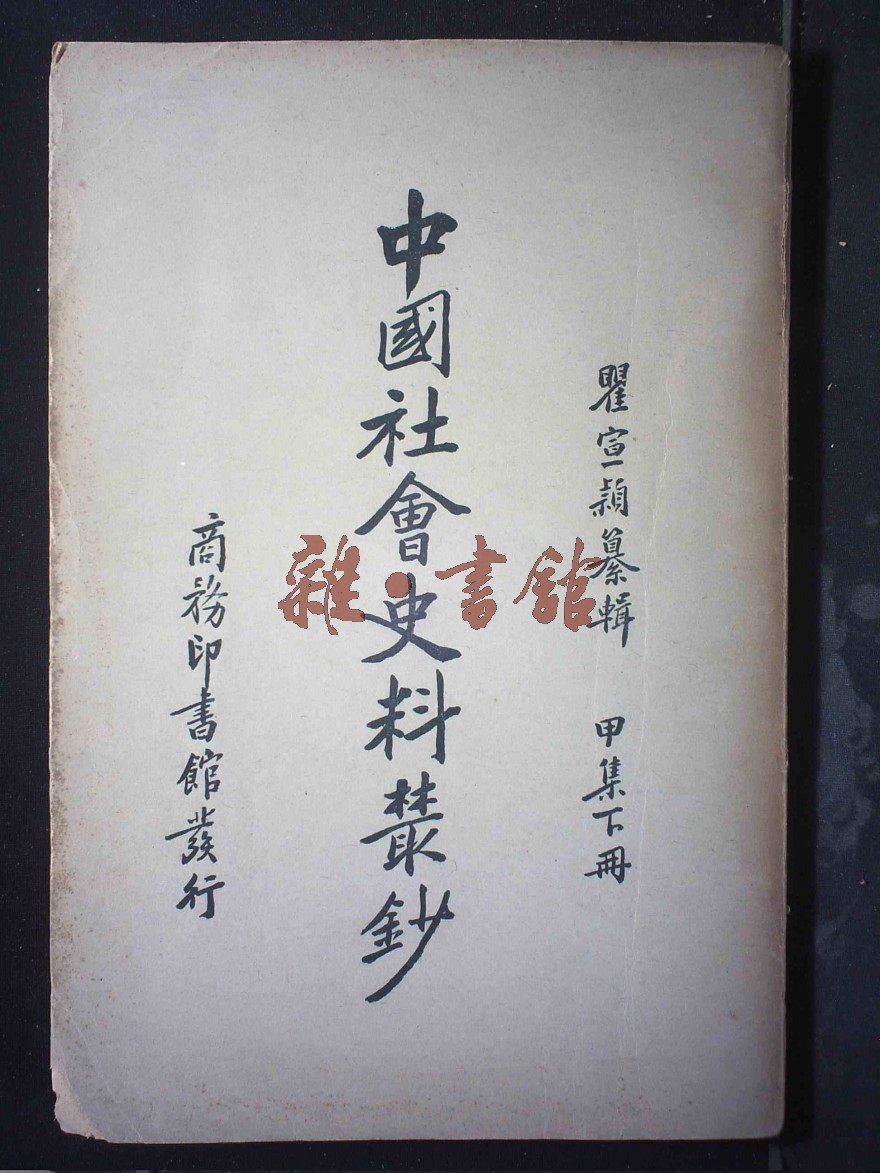 瞿宣穎纂輯 甲集下冊
中國社會史料叢鈔
商務印書館發行
雜·書館